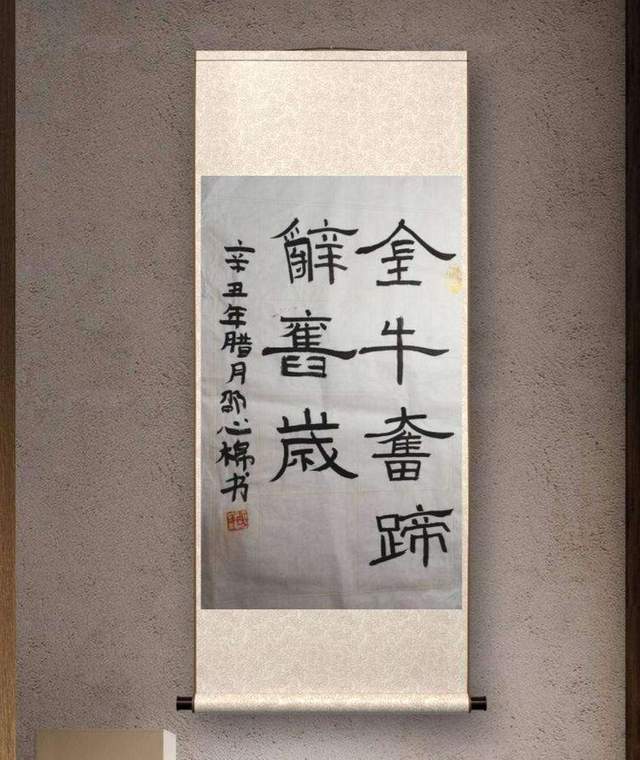 金牛奮蹄
辭舊歲
辛丑年腊月邵心棉书